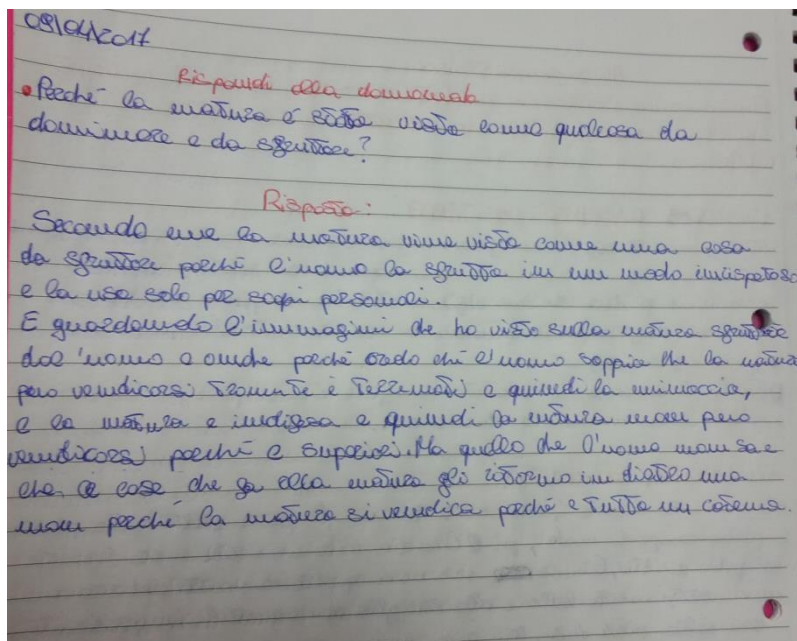 08/04/2017
Rispondi alla domanda
• Perché la natura é stata vista come qualcosa da
dominare e da sfruttare?
Risposta:
Secondo me la natura viene vista come una cosa
da sfruttare perché l'uomo la sfrutta in un modo irrispetoso
e la usa solo per scopi personali.
E guardando l'immagini che ho visto sulla natura sfruttate
dal'uomo e anche perché credo chi l'uomo sappia che la natura
però vendicarsi tramite i terremoti e quindi la minaccia,
e la natura e indifesa e quindi la natura non però
vendicarsi perché e superiori. Ma quello che l'uomo non sa e
che le cose che fa alla natura gli ritorno in dietro ma
non perché la natura si vendica perché e tutta un catena.